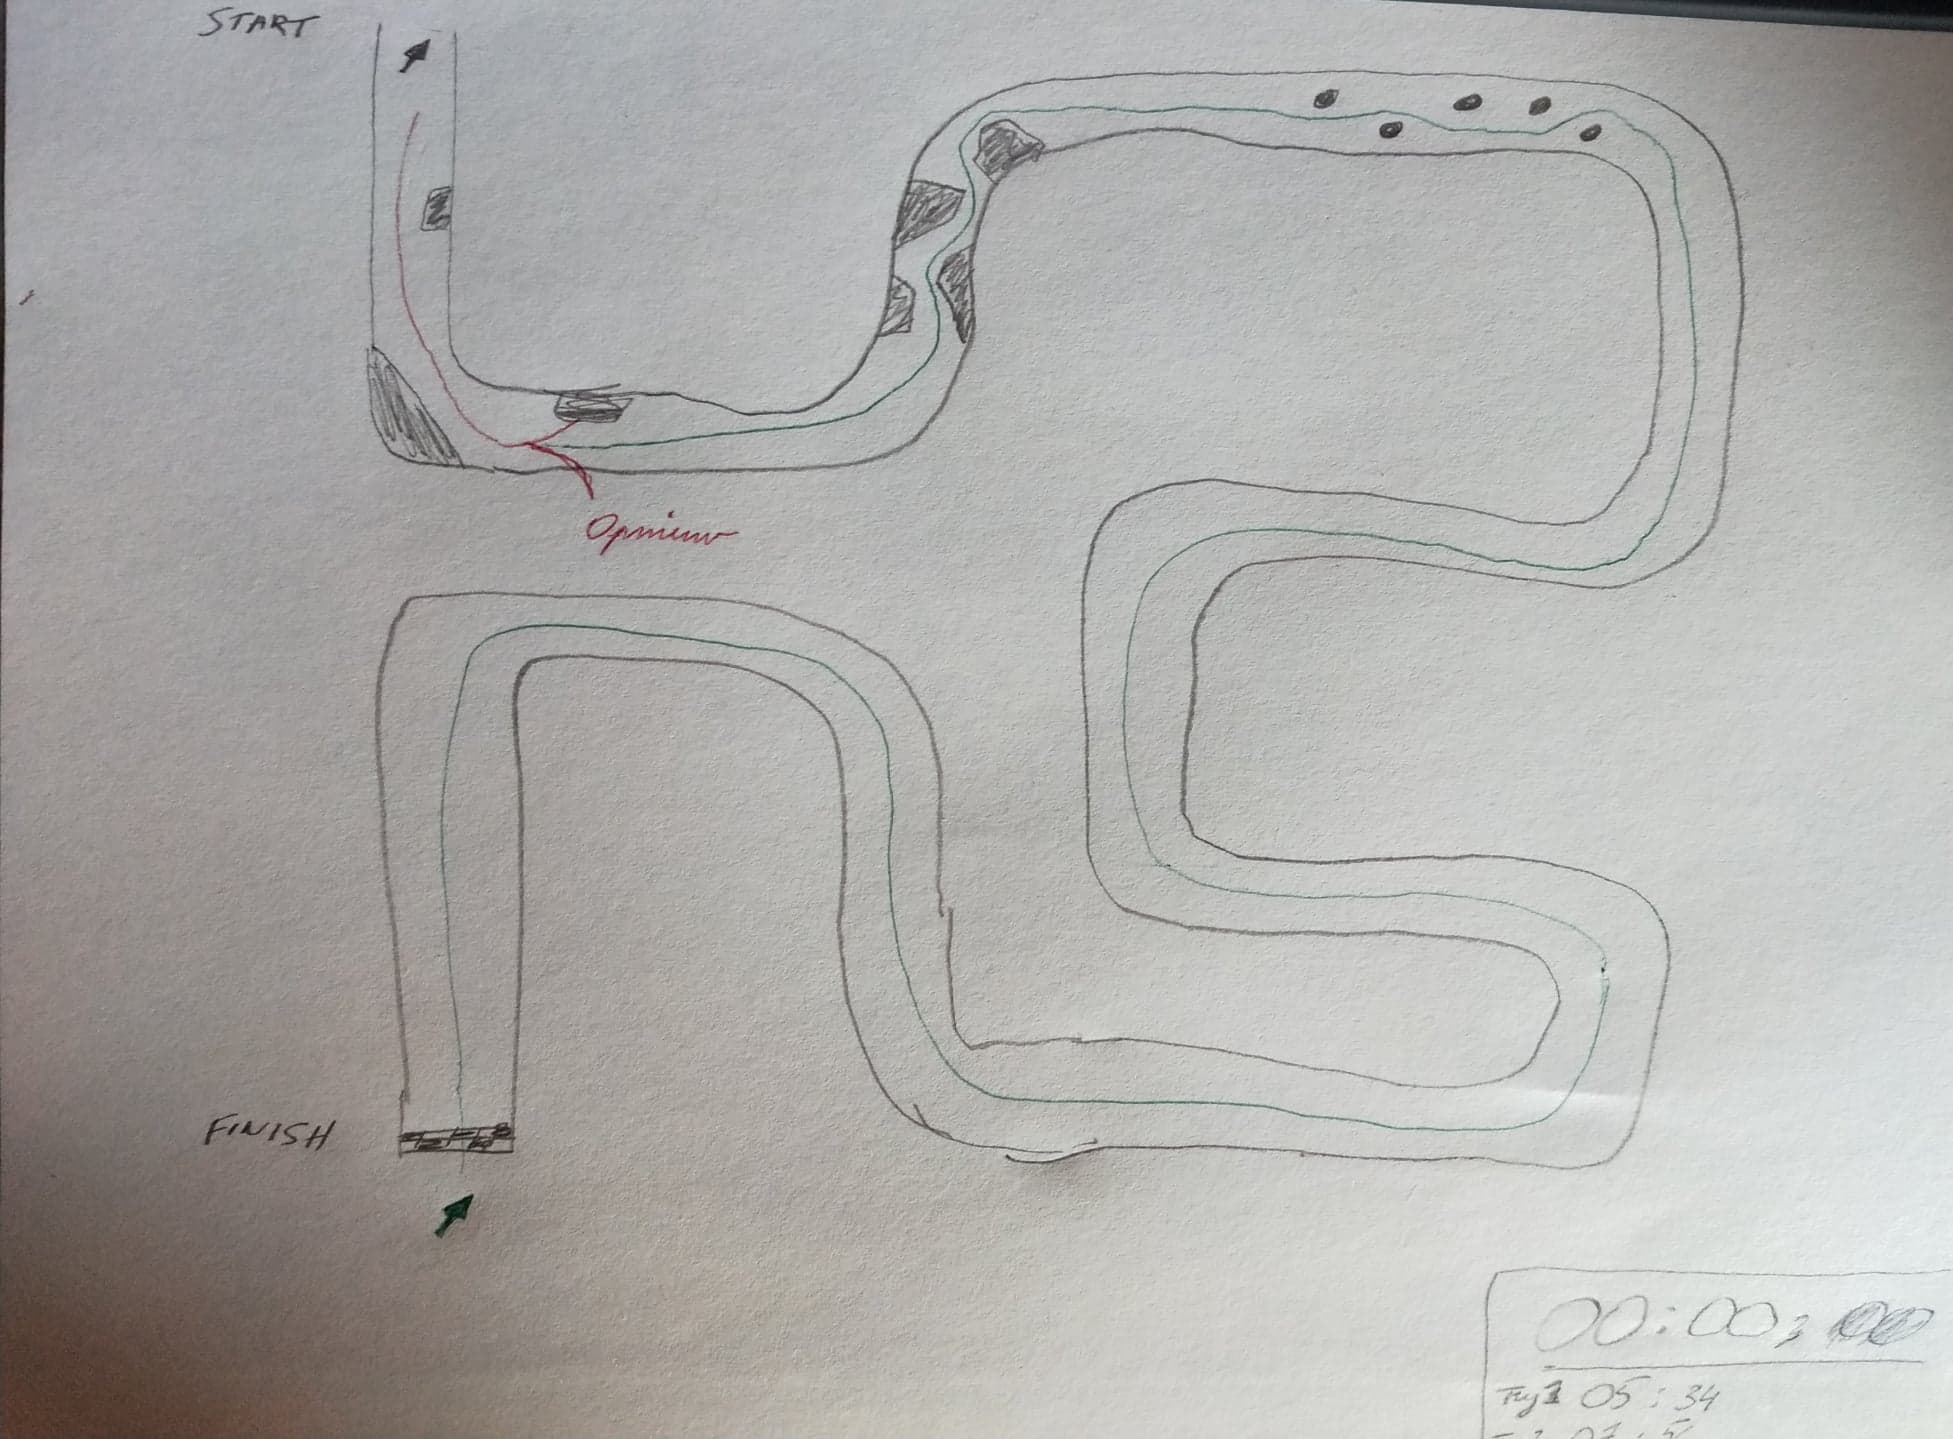 START
Opnieuw
FINISH
00:00,00
Try1 05:34